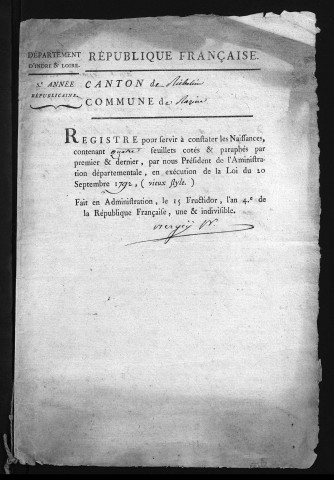 DÉPARTEMENT
D'INDRE & LOIRE.
RÉPUBLIQUE FRANÇAISE.
5.e ANNÉE
RÉPUBLICAINE.
CANTON de Richelieu
COMMUNE de Razines
REGISTRE pour servir à constater les Naissances,
contenant quatre feuillets cotés & paraphés par
premier & dernier, par nous Président de l'Aministra-
tion départementale, en exécution de la Loi du 20
Septembre 1792, ( vieux style. )
Fait en Administration, le 15 Fructidor, l'an 4.e de
la République Française, une & indivisible.